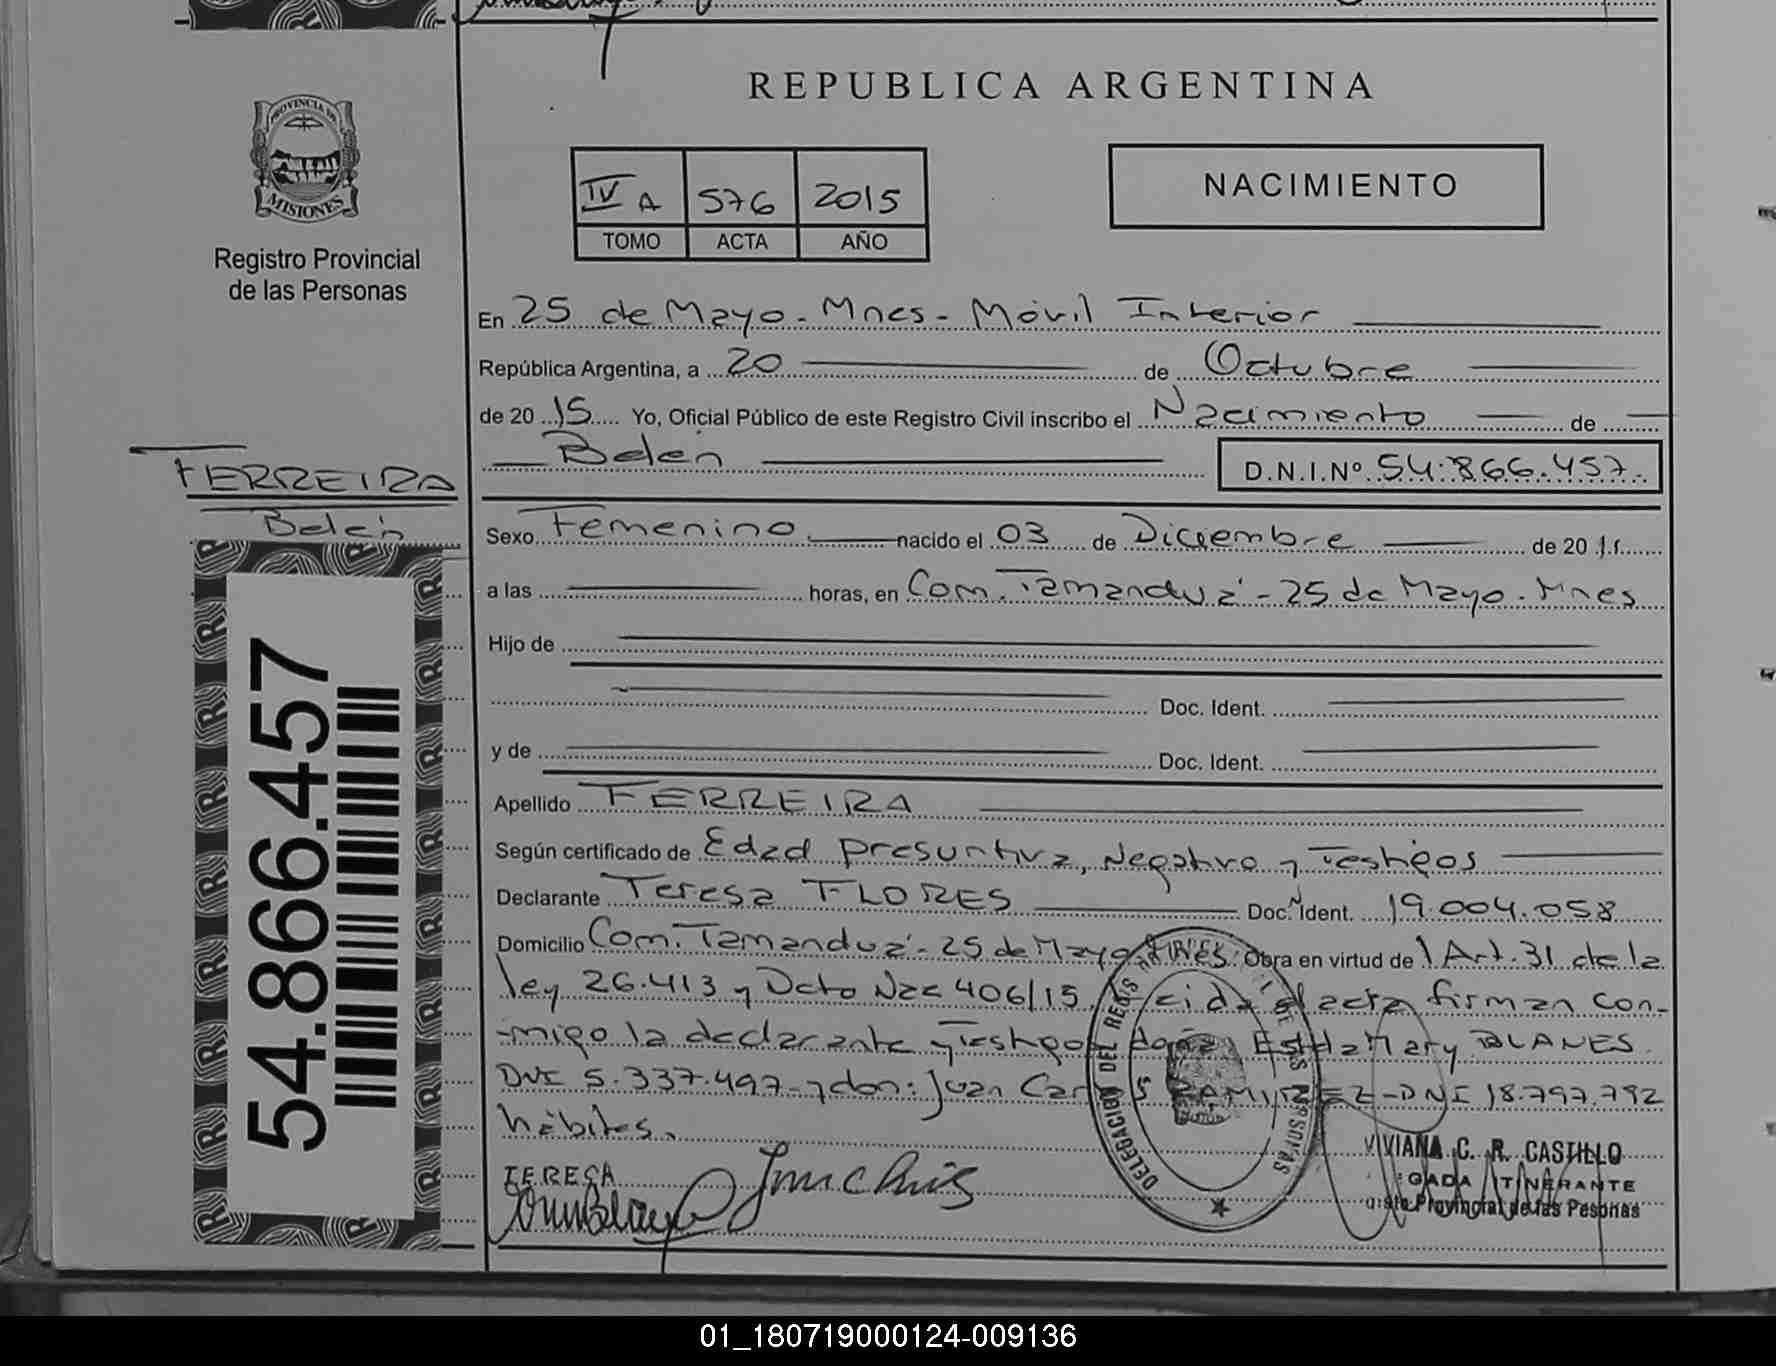 REPUBLICA ARGENTINA
PROVINCIA DE
MISIONES
Registro Provincial
de las Personas
IV A 576 2015
TOMO ACTA AÑO
NACIMIENTO
En 25 de Mayo - Mnes - Móvil Interior
República Argentina, a 20 de Octubre
de 20 15 Yo, Oficial Público de este Registro Civil inscribo el Nacimiento de
Belén D.N.I.Nº 54.866.457.
FERREIRA
Belén
Sexo Femenino nacido el 03 de Diciembre de 20
a las horas, en Com. Tamanduá - 25 de Mayo - Mnes
Hijo de
Doc. Ident.
y de Doc. Ident.
Apellido FERREIRA
Según certificado de Edad presuntiva, Negativo y Testigos
Declarante Teresa FLORES Doc. Ident. 19.004.058
Domicilio Com. Tamanduá - 25 de Mayo - Mnes. Obra en virtud de l Art. 31 de la
ley 26.413 y Dcto Nac 406/15, acta firman con-
-migo la declarante y Testigos doña Mary BLANES
DNI 5.337.497 y don: Juan Carlos RAMIREZ - DNI 18.797.792
hábiles.
54.866.457
TERESA
DELEGACION DEL REGISTRO
VIVIANA C. R. CASTILLO
GADA ITINERANTE
Provincial de las Pesonas
01_180719000124-009136